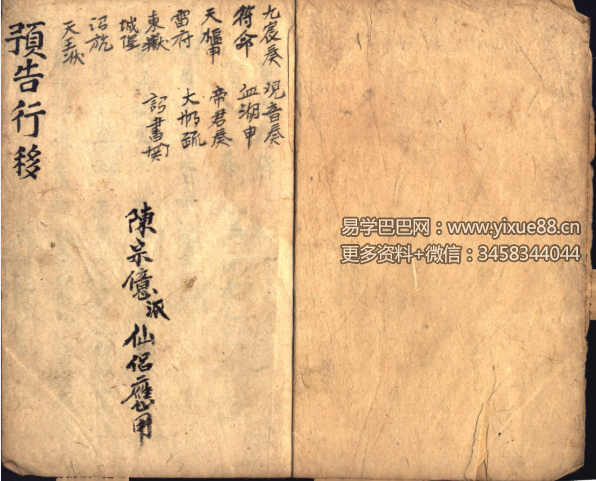 預告行移
九宸奏 观音奏
符命 血湖申
天 申 帝君奏
雷府 大 疏
東嶽
城隍
天王状
陳宗億 派 仙侣應用
易学巴巴网：www.yixue88.cn
更多资料+微信：3458344044